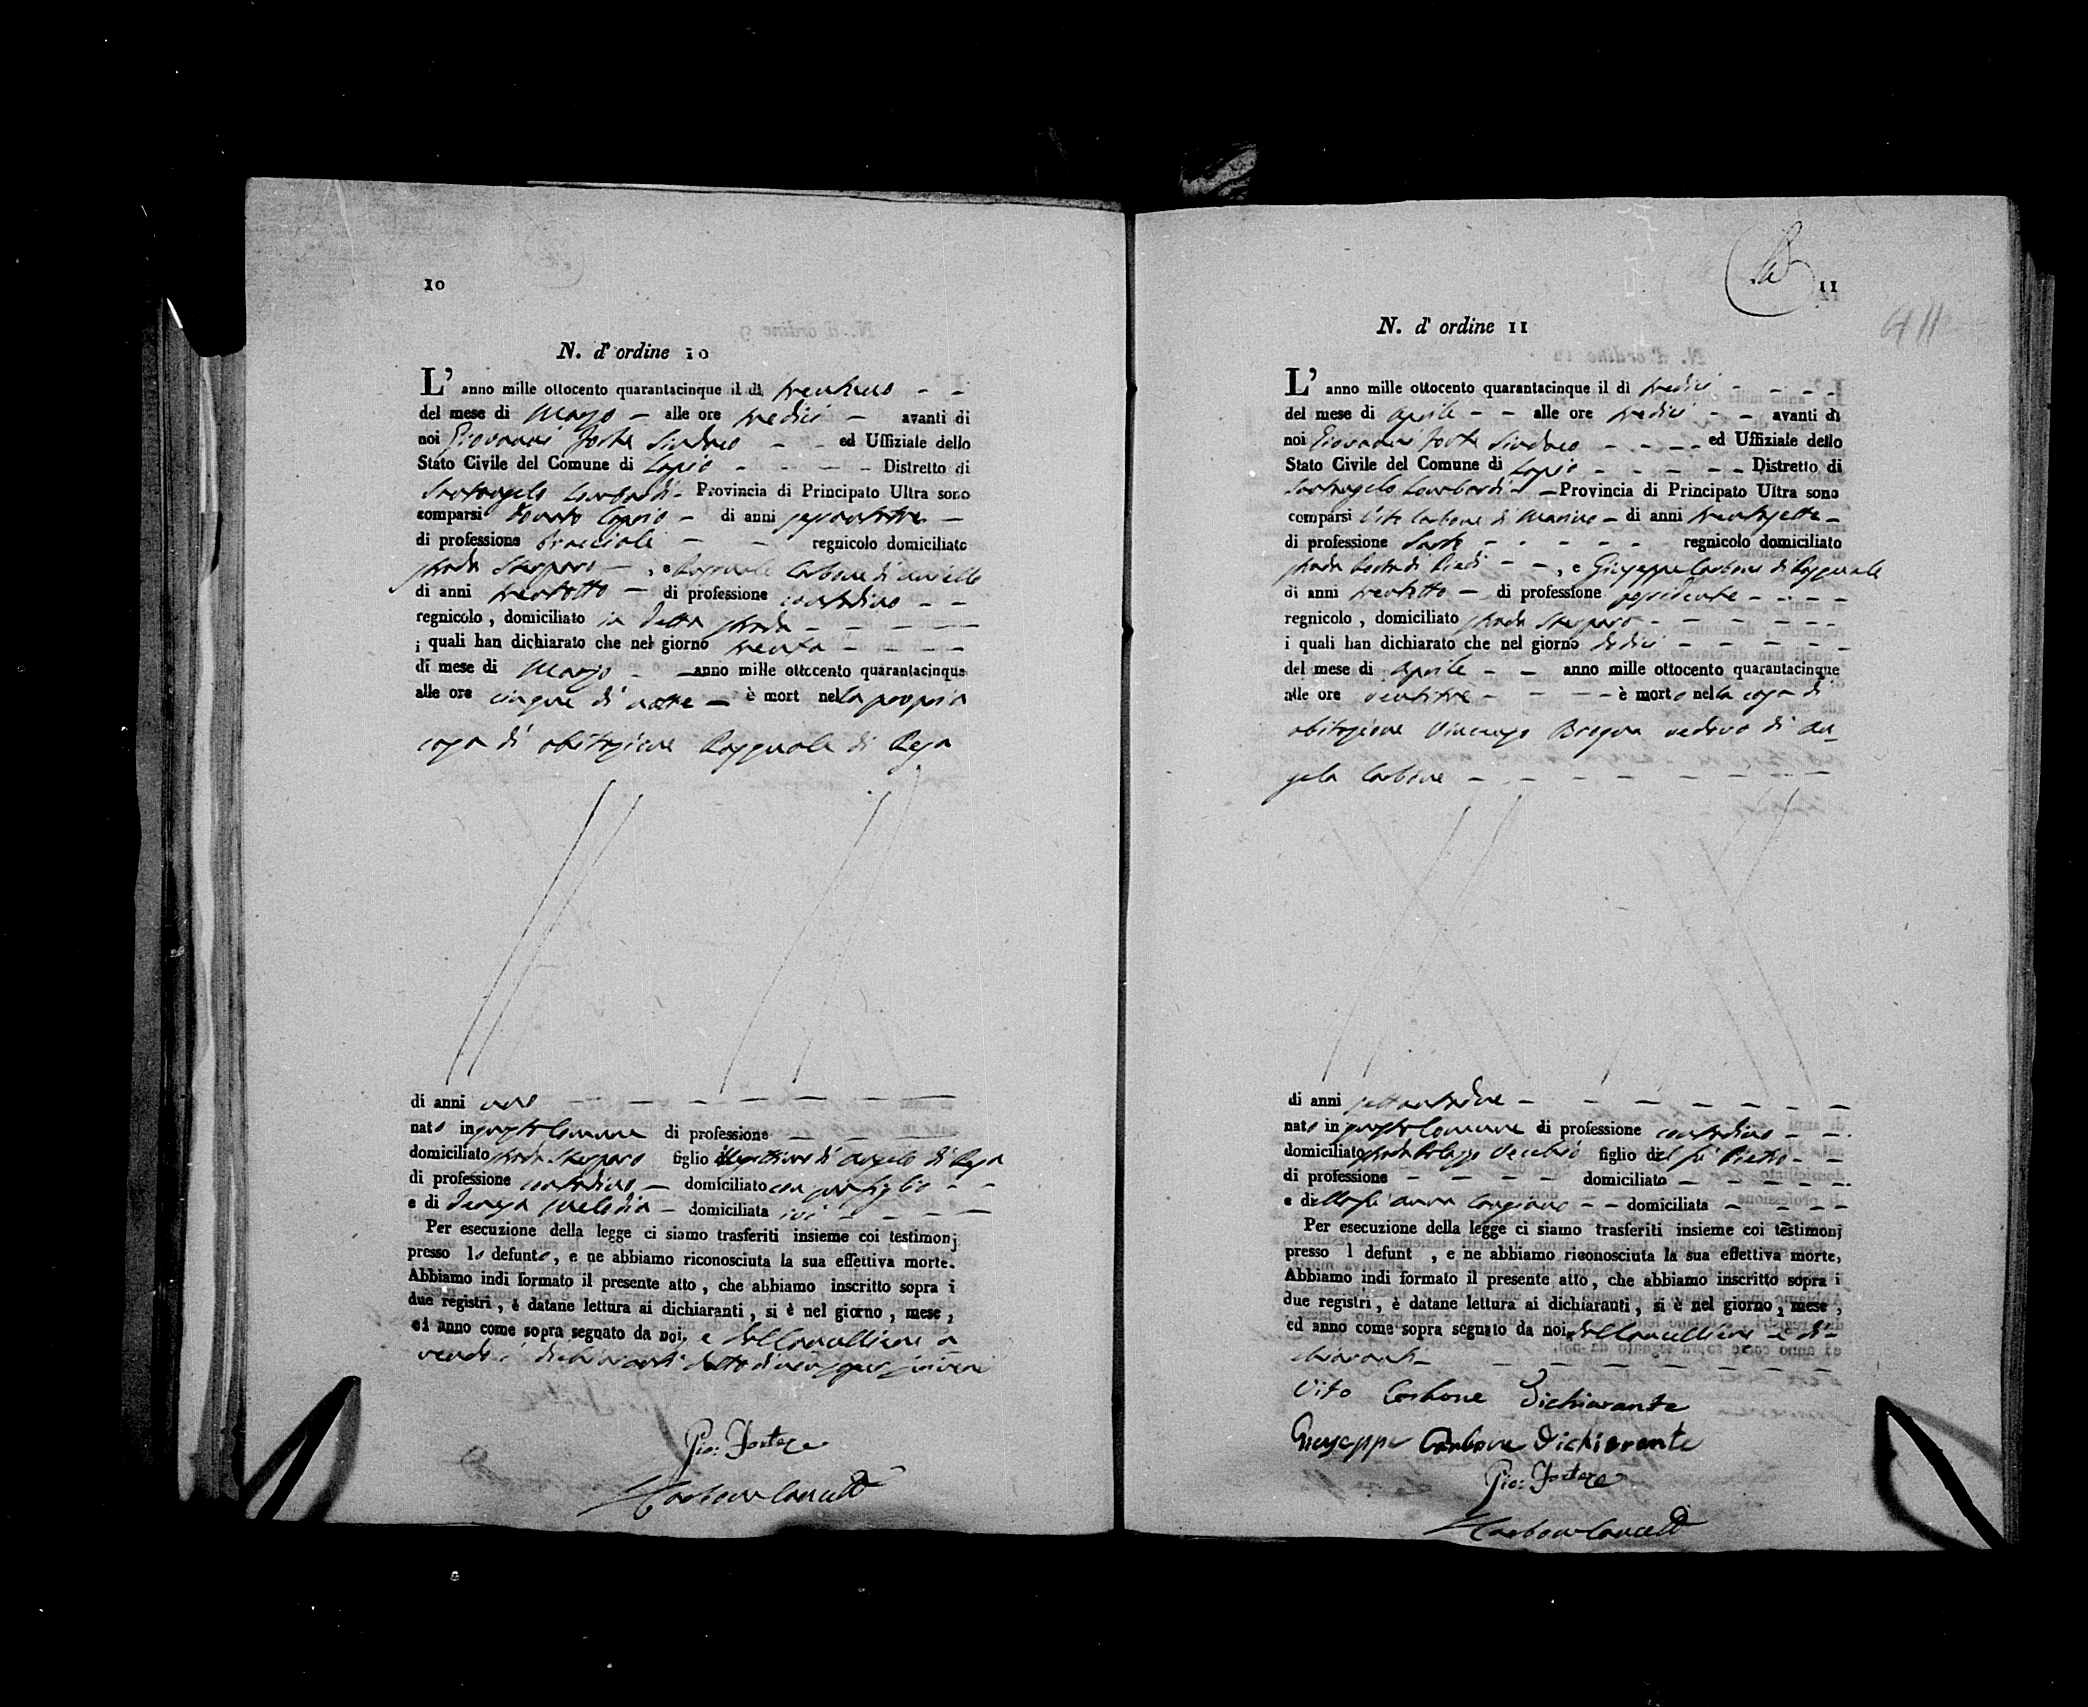 10
N. d' ordine 10
L' anno mille ottocento quarantacinque il di trentuno
del mese di Marzo alle ore tredici avanti di
noi Giovanni Forte Sindaco ed Uffiziale dello
Stato Civile del Comune di Lapio Distretto di
Santangelo Lombardi Provincia di Principato Ultra sono
comparsi Donato Caprio di anni sessantatre
di professione bracciale regnicolo domiciliato
strada , e Pasquale Carbone di Aniello
di anni trentotto di professione contadino
regnicolo , domiciliato in detta strada
i quali han dichiarato che nel giorno trenta
di mese di Marzo anno mille ottocento quarantacinque
alle ore cinque di notte è mort nella propria
casa di abitazione Pasquale di Resa
di anni uno
nato in questo Comune di professione
domiciliato strada figlio di Angelo di Resa
di professione contadino domiciliato con suo figlio
e di domiciliata ivi
Per esecuzione della legge ci siamo trasferiti insieme coi testimonj
presso lo defunto, e ne abbiamo riconosciuta la sua effettiva morte.
Abbiamo indi formato il presente atto , che abbiamo inscritto sopra i
due registri , è datane lettura ai dichiaranti , si è nel giorno , mese ,
ed anno come sopra segnato da noi, e dal Cancelliere a
vendo i dichiaranti detto di non saper scrivere
Gio: Forte
Carbone Cancell
11
411
N. d' ordine 11
L' anno mille ottocento quarantacinque il di tredici
del mese di Aprile alle ore tredici avanti di
noi Giovanni Forte Sindaco ed Uffiziale dello
Stato Civile del Comune di Lapio Distretto di
Santangelo Lombardi Provincia di Principato Ultra sono
comparsi Vito Carbone di Marino di anni trentasette
di professione Sarto regnicolo domiciliato
strada , e Giuseppe Carbone di Pasquale
di anni trentotto di professione possidente
regnicolo , domiciliato strada
i quali han dichiarato che nel giorno dodici
del mese di Aprile anno mille ottocento quarantacinque
alle ore ventitre è morto nella casa di
abitazione Vincenzo Bregna vedovo di An-
gela Carbone
di anni settantadue
nato in questo Comune di professione contadino
domiciliato strada Palazzo Vecchio figlio del fu Pietro
di professione domiciliato
e della fu Anna domiciliata
Per esecuzione della legge ci siamo trasferiti insieme coi testimonj
presso l defunt , e ne abbiamo riconosciuta la sua effettiva morte,
Abbiamo indi formato il presente atto , che abbiamo inscritto sopra i
due registri , è datane lettura ai dichiaranti , si è nel giorno , mese ,
ed anno come sopra segnato da noi, dal Cancelliere e di-
chiaranti
Vito Carbone Dichiarante
Giuseppe Carbone Dichiarante
Gio: Forte
Carbone Cancell